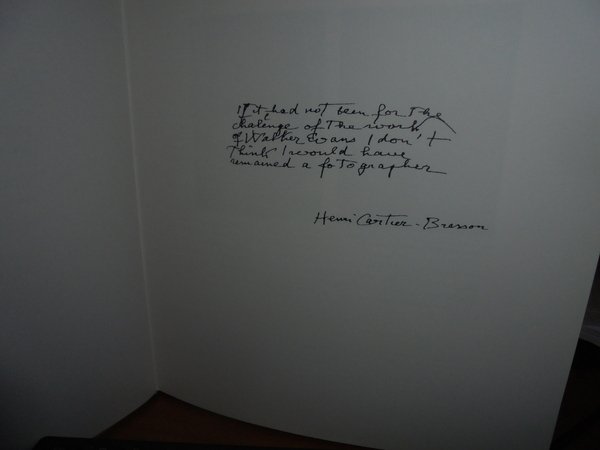 If it had not been for the
chalenge of the work
of Walker Evans I don't
think I would have
remained a fotographer
Henri Cartier-Bresson